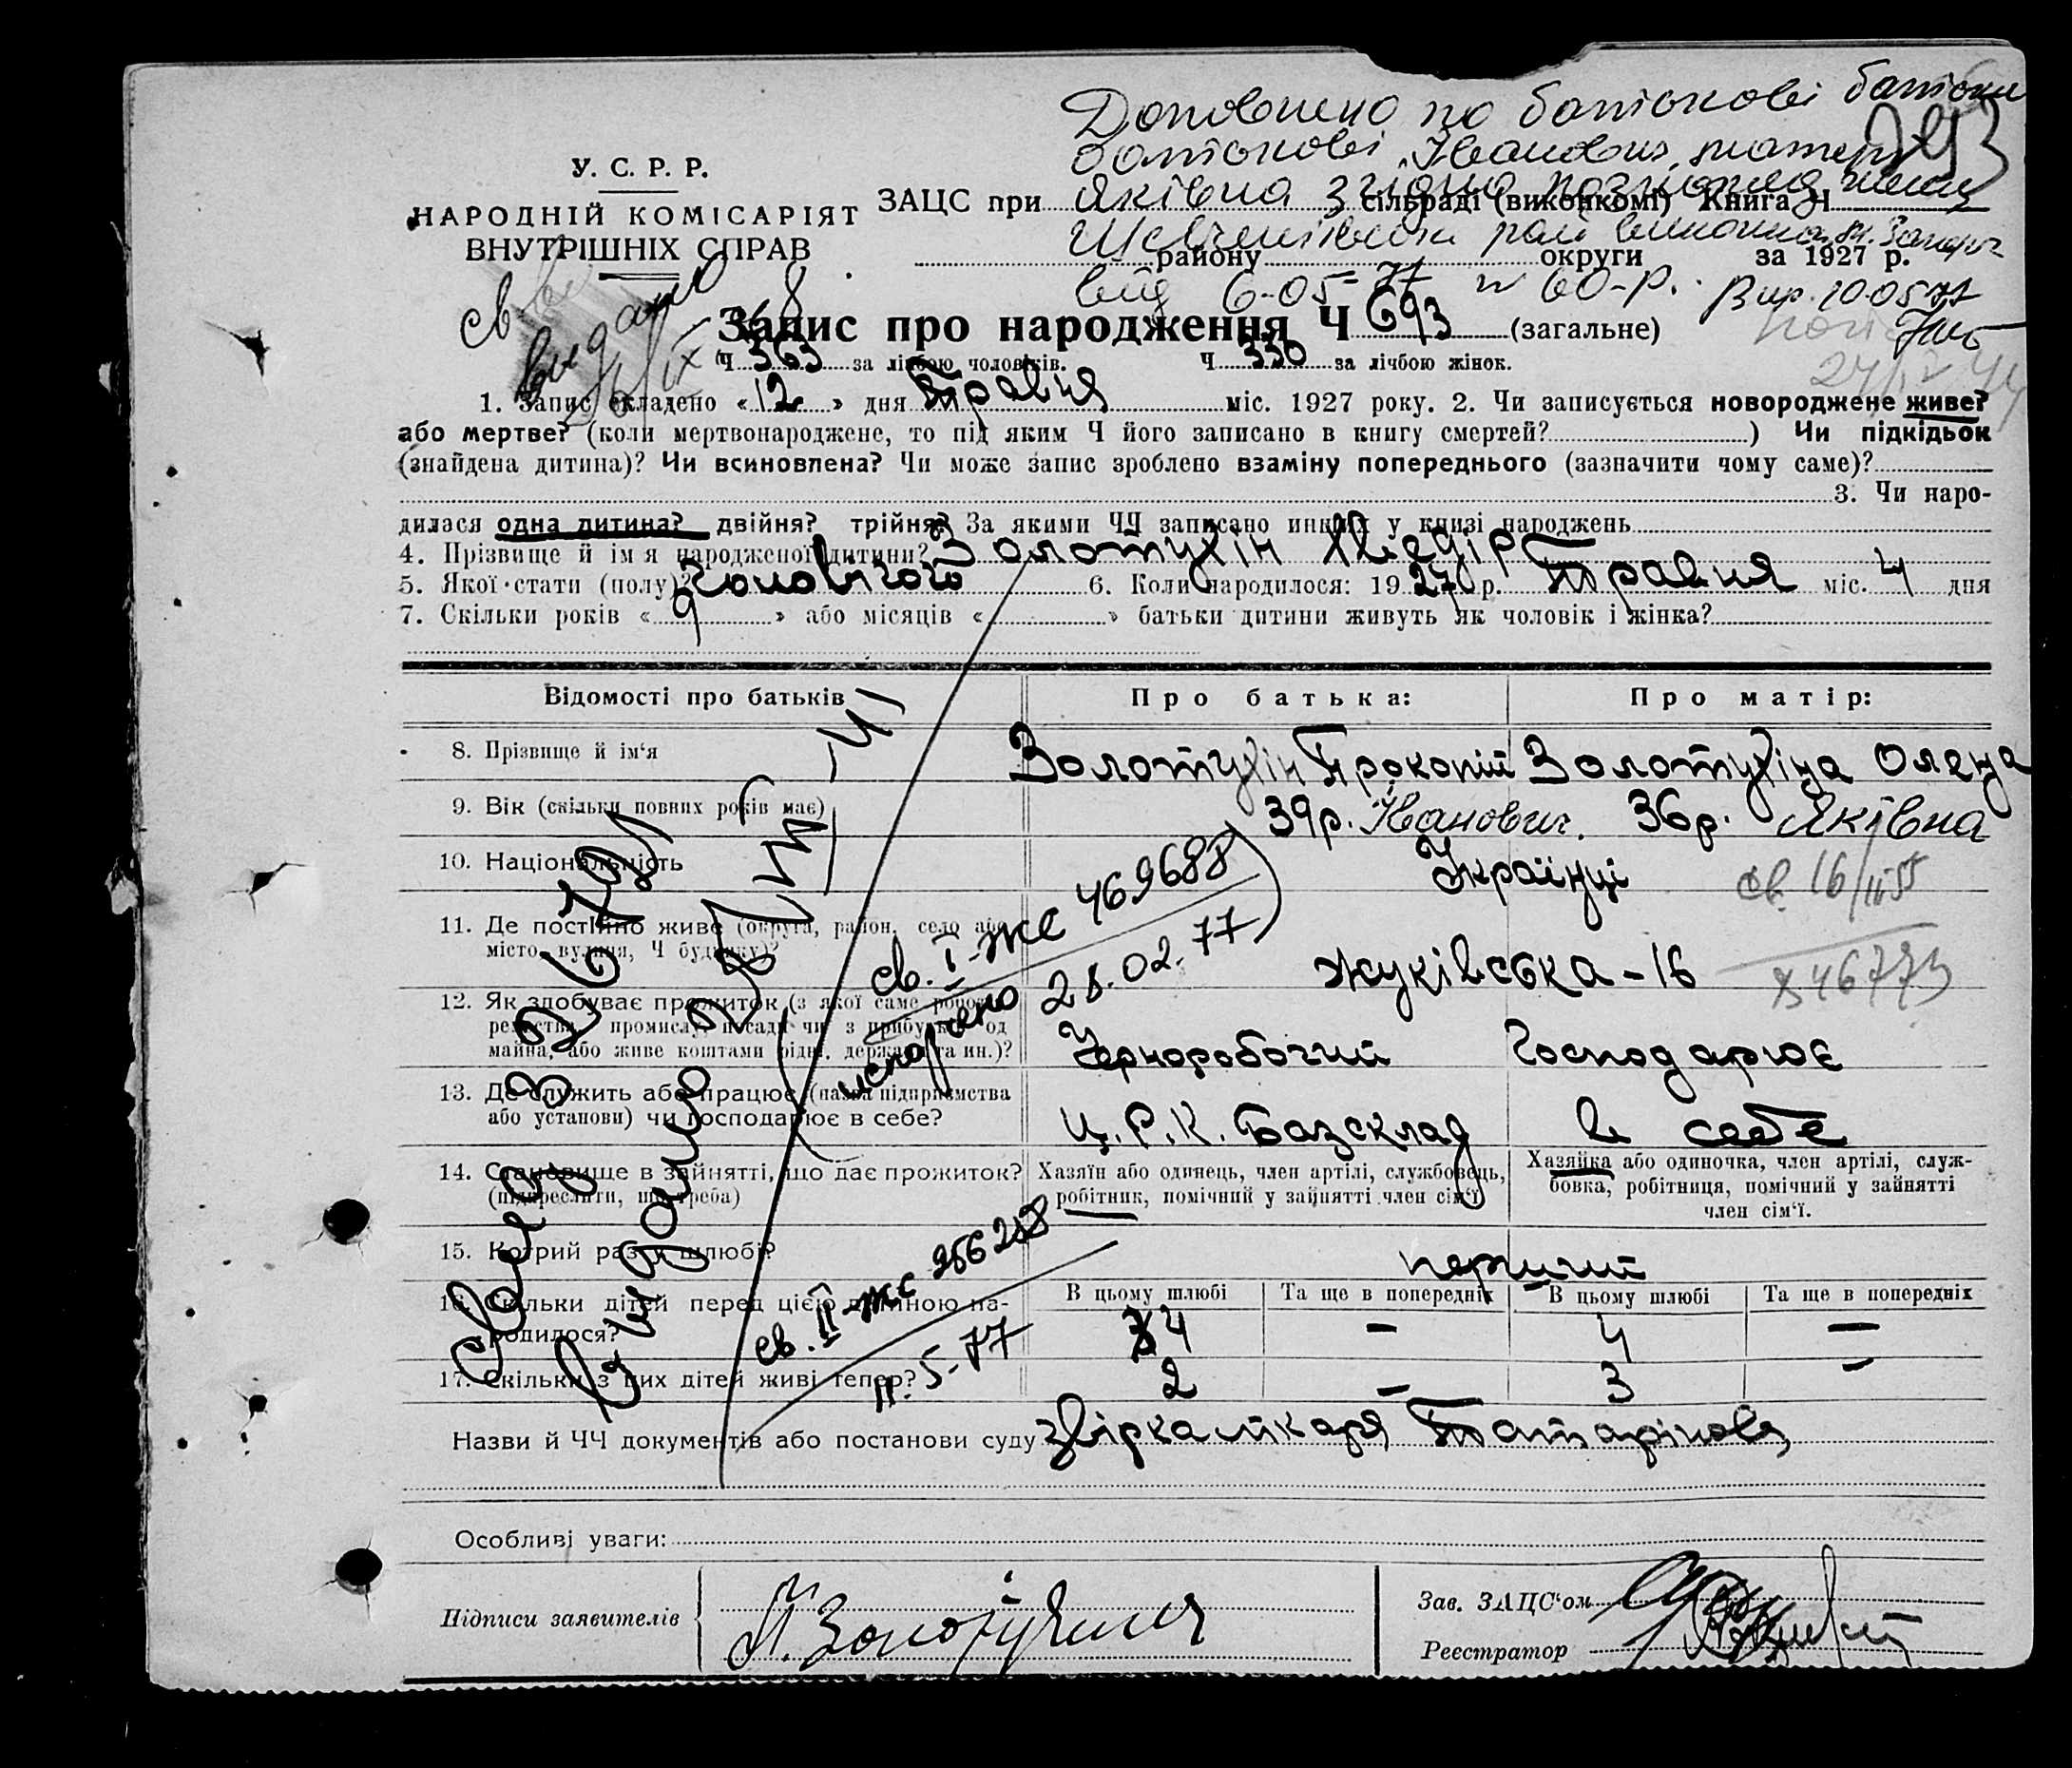 Доповнено по батькові
батькові "Іванович", матері
Яківна згідно
Шевченківськ рай виконкома м. Запор.
від 6-05-77 № 60-р. Вир. 10.05.77
293
У. С. Р. Р.
НАРОДНІЙ КОМІСАРІЯТ
ВНУТРІШНІХ СПРАВ
ЗАЦС при сільраді (виконкомі) Книга Ч
району округи за 1927 р.
св видано
Запис про народження Ч 693 (загальне)
Ч 363 за лічбою чоловіків. Ч 330 за лічбою жінок.
1. Запис складено «12» дня Травня міс. 1927 року. 2. Чи записується новороджене живе?
або мертве? (коли мертвонароджене, то під яким Ч його записано в книгу смертей? ) Чи підкідьок
(знайдена дитина)? Чи всиновлена? Чи може запис зроблено взаміну попереднього (зазначити чому саме)?
3. Чи наро-
дилася одна дитина? двійня? трійня? За якими ЧЧ записано инших у книзі народжень
4. Прізвище й ім'я народженої дитини? Золотухін Хведір
5. Якої стати (полу)? Чоловічого 6. Коли народилося: 1927 р. Травня міс. 4 дня
7. Скільки років «9» або місяців « » батьки дитини живуть як чоловік і жінка?
Відомості про батьків Про батька: Про матір:
8. Прізвище й ім'я Золотухін Прокопій Золотухіна Олена
9. Вік (скільки повних років має) 39р. Іванович. 36р. Яківна
10. Національність Українці
св. 16/II 55
11. Де постійно живе (округа, район, село або
місто, вулиця, Ч будинку)? Жуківська-16
846773
св. I-ЖС 469688
28.02.77
испорчено
12. Як здобуває прожиток (з якої саме роботи,
ремества, промислу, посади чи з прибутків од
майна, або живе коштами рідні, держави та ин.)? Чорноробочий Господарює
13. Де служить або працює (назва підприємства
або установи) чи господарює в себе? Ц.Р.К. Базсклад в себе
14. Становище в зайнятті, що дає прожиток?
(підкреслити, що треба)
Хазяїн або одинець, член артілі, службовець,
робітник, помічний у зайнятті член сім'ї
Хазяйка або одиночка, член артілі, служ-
бовка, робітниця, помічний у зайнятті
член сім'ї.
15. Котрий раз у шлюбі? перший
16. Скільки дітей перед цією дитиною на-
родилося?
В цьому шлюбі Та ще в попередніх В цьому шлюбі Та ще в попередніх
4 – 4 –
17. Скільки з них дітей живі тепер? 2 – 3 –
св. II-ЖС
11.5-77
Назви й ЧЧ документів або постанови суду
Особливі уваги:
Підписи заявителів П. Золотухин
Зав. ЗАЦС'ом
Реєстратор